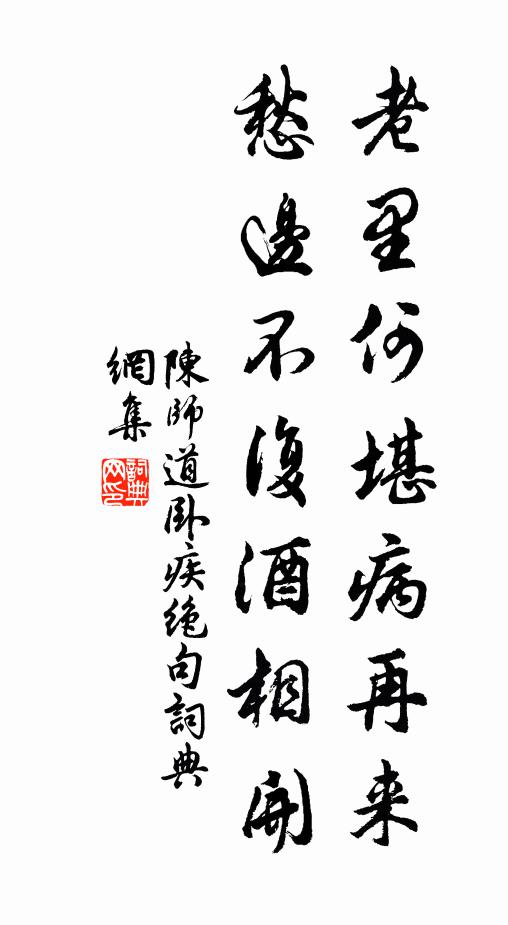 老里何堪病再来
愁邊不復酒相開
陳師道卧疾绝句詞典
網集
詞典
网印